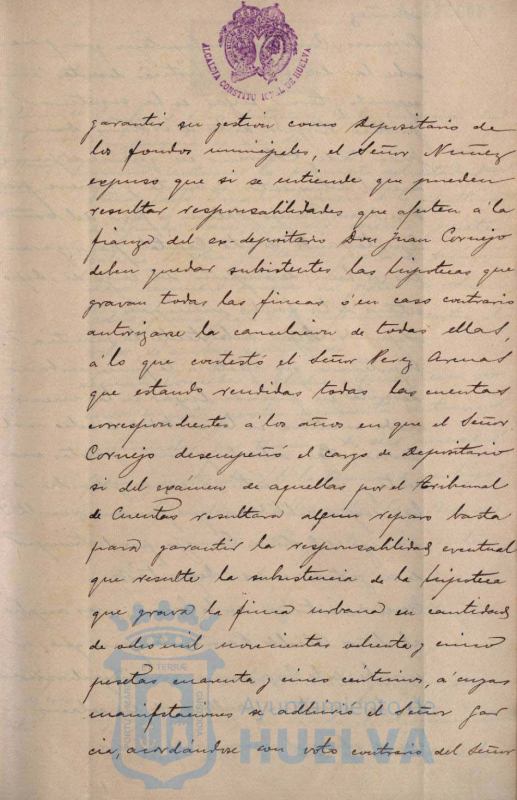 ALCALDIA CONSTITUCIONAL DE HUELVA
garantir su gestion como Depositario de
los fondos municipales, el Señor Nuñez
expuso que si se entiende que pueden
resultar responsabilidades que afecten á la
fianza del ex-depositario Don Juan Cornejo
deben quedar subsistentes las hipotecas que
gravan todas las fincas ó en caso contrario
autorizarse la cancelacion de todas ellas,
á lo que contestó el Señor Perez Arenas
que estando rendidas todas las cuentas
correspondientes á los años en que el Señor
Cornejo desempeñó el cargo de Depositario
si del exámen de aquellas por el Tribunal
de Cuentas resultara algun reparo basta
para garantir la responsabilidad eventual
que resulte la subsistencia de la hipoteca
que grava la finca urbana en cantidad
de mil novecientas ochenta y cinco
pesetas cuarenta y cinco centimos, á cuyas
manifestaciones se adhirió el Señor Gar
cia, acordándose con voto contrario del Señor
Ayuntamiento de
HUELVA